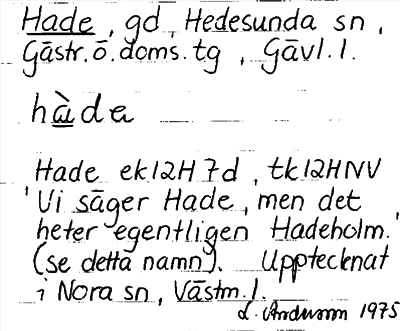 Hade, gd, Hedesunda sn,
Gästr.ö.doms.tg, Gävl.l.
hàde
Hade ek12H7d, tk12HNV
'Vi säger Hade, men det
heter egentligen Hadeholm.'
(se detta namn). Upptecknat
i Nora sn, Västm.l.
L. Andersson 1975